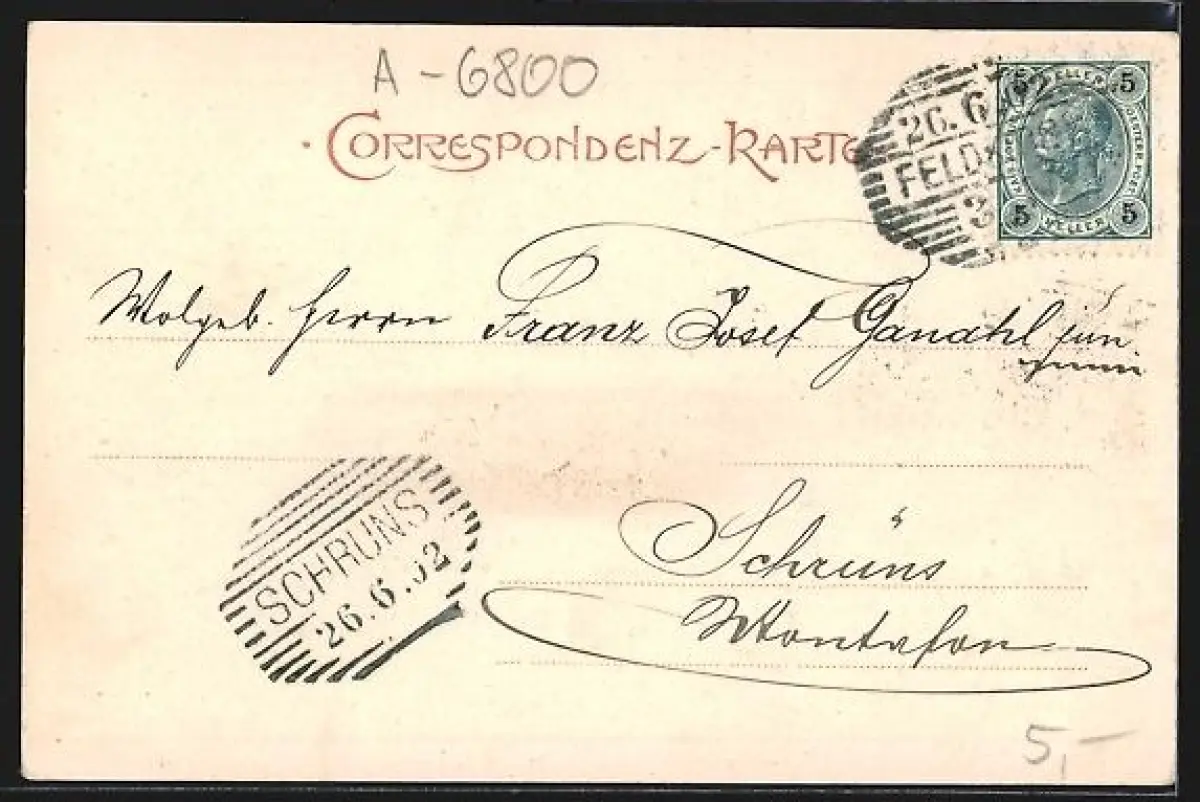 A - 6800
CORRESPONDENZ-KARTE
26.6.02
FELD
3
5 HELLER 5
5 HELLER 5
Wolgeb. Herrn Franz Josef Ganahl jun.
SCHRUNS
26.6.02
Schruns
Montafon
5,-